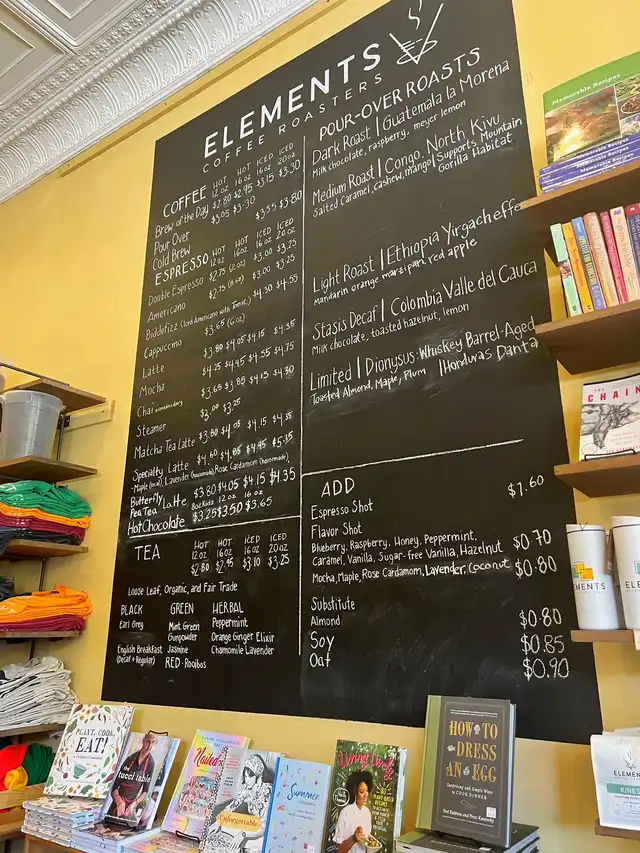 ELEMENTS
COFFEE ROASTERS
COFFEE HOT 12 oz HOT 16 oz ICED 16 oz ICED 20 oz
Brew of the Day $2.80 $2.95 $3.15 $3.30
Pour Over $3.05 $3.30
Cold Brew $3.55 $3.80
ESPRESSO HOT 12 oz HOT 16oz ICED 16 oz ICED 20 oz
Double Espresso $2.75 (2 oz) $3.00 $3.25
Americano $2.75 (8 oz) $3.00 $3.25
Biddefizz (Iced Americano with Tonic) $4.30 $4.55
Cappuccino $3.65 (6 oz)
Latte $3.80 $4.05 $4.15 $4.35
Mocha $4.25 $4.45 $4.55 $4.75
Chai $3.65 $3.85 $4.15 $4.30
Steamer $3.00 $3.25
Matcha Tea Latte $3.80 $4.05 $4.15 $4.35
Specialty Latte $4.60 $4.85 $4.95 $5.15
Maple (local), Lavender (housemade), Rose Cardamom (housemade)
Butterfly
Pea Tea Latte $3.80 $4.05 $4.15 $4.35
8oz Kids 12 oz 16 oz
Hot Chocolate $3.25 $3.50 $3.65
TEA HOT 12oz HOT 16oz ICED 16oz ICED 20oz
$2.80 $2.95 $3.10 $3.25
Loose Leaf, Organic, and Fair Trade
BLACK GREEN HERBAL
Earl Grey Mint Green Peppermint
Gunpowder Orange Ginger Elixir
English Breakfast Jasmine Chamomile Lavender
(Decaf + Regular) RED - Rooibos
POUR-OVER ROASTS
Dark Roast | Guatemala la Morena
Milk chocolate, raspberry, meyer lemon
Medium Roast | Congo, North Kivu
Salted Caramel, cashew, mango | Supports Mountain
Gorilla Habitat
Light Roast | Ethiopia Yirgacheffe
Mandarin orange marzipan, red apple
Stasis Decaf | Colombia Valle del Cauca
Milk chocolate, toasted hazelnut, lemon
Limited | Dionysus: Whiskey Barrel-Aged
Toasted Almond, Maple, Plum | Honduras Danta
ADD
Espresso Shot $1.60
Flavor Shot
Blueberry, Raspberry, Honey, Peppermint,
Caramel, Vanilla, Sugar-free Vanilla, Hazelnut $0.70
Mocha, Maple, Rose Cardamom, Lavender, Coconut $0.80
Substitute
Almond $0.80
Soy $0.85
Oat $0.90
Memorable Recipes
Memorable Recipes
Memorable Recipes
THE
CHAIN
ELEMENTS
PLANT, COOK,
EAT!
tucci table
Naked
Unforgettable
Summer
Living
HOW TO
DRESS
AN EGG
Surprising and Simple Ways
to COOK DINNER
Ned Baldwin and Peter Kaminsky
ELEMENTS